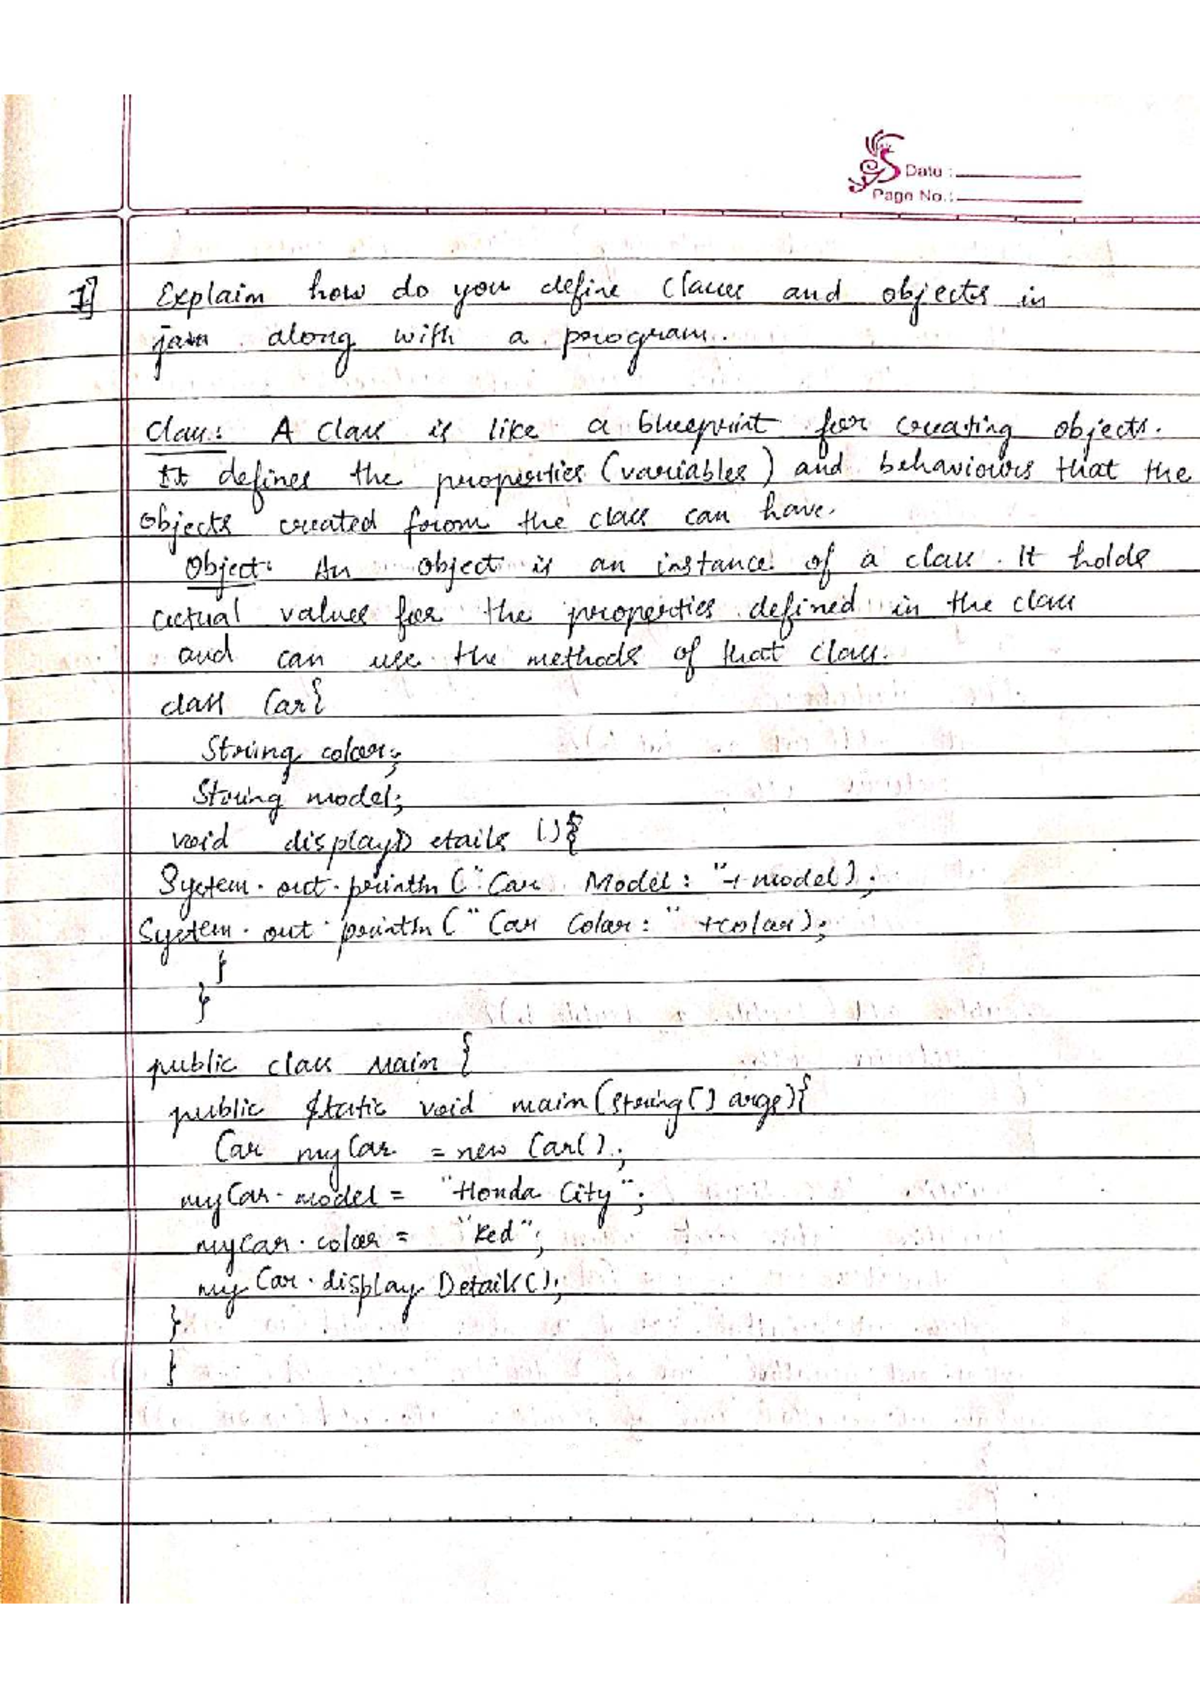 Date :
Page No.:
1] Explain how do you define classes and objects in
java along with a program.
Class: A class is like a blueprint for creating objects.
It defines the properties (variables) and behaviours that the
objects created from the class can have.
Object: An object is an instance of a class. It holds
actual values for the properties defined in the class
and can use the methods of that class.
class Car{
String color;
String model;
void displayDetails (){
System.out.println ("Car Model: "+model);
System.out.println ("Car Color: " +color);
}
}
public class Main {
public static void main(String[] args){
Car myCar = new Car();
myCar.model = "Honda City";
myCar.color = "Red";
myCar.displayDetails();
}
}